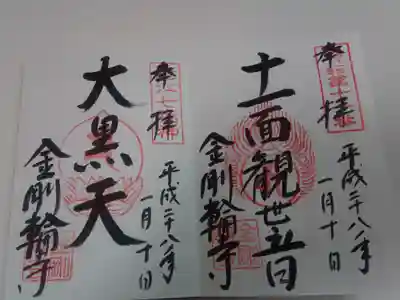 奉拝
十一面観世音
金剛輪寺
平成二十八年
一月十日
奉拝
大黒天
金剛輪寺
平成二十八年
一月十日